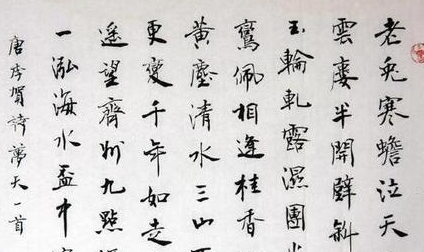 老兔寒蟾泣天
雲廔半開壁斜
玉輪軋露濕團
鸞佩相逢桂香
黃塵清水三山
更變千年如走
遙望齊州九點
一泓海水盃中
唐李賀詩夢天一首